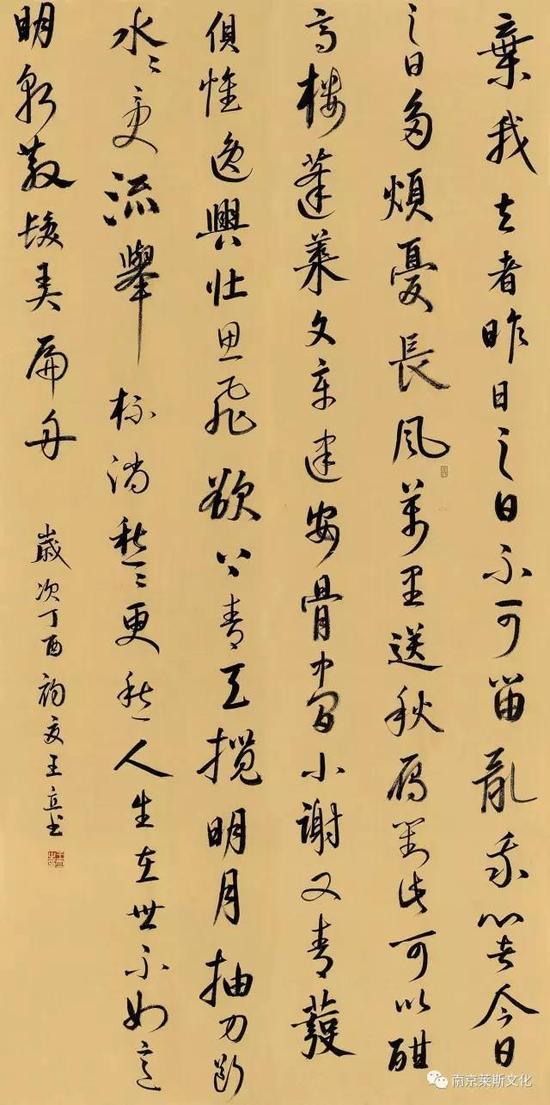 棄我去者昨日之日不可留亂我心者今日
之日多煩憂長風萬里送秋雁對此可以酣
高樓蓬萊文章建安骨中間小謝又青發
俱懷逸興壯思飛欲上青天攬明月抽刀斷
水〻更流舉杯消愁〻更愁人生在世不如意
明朝散髮弄扁舟
歲次丁酉初夏王立書
南京莱斯文化